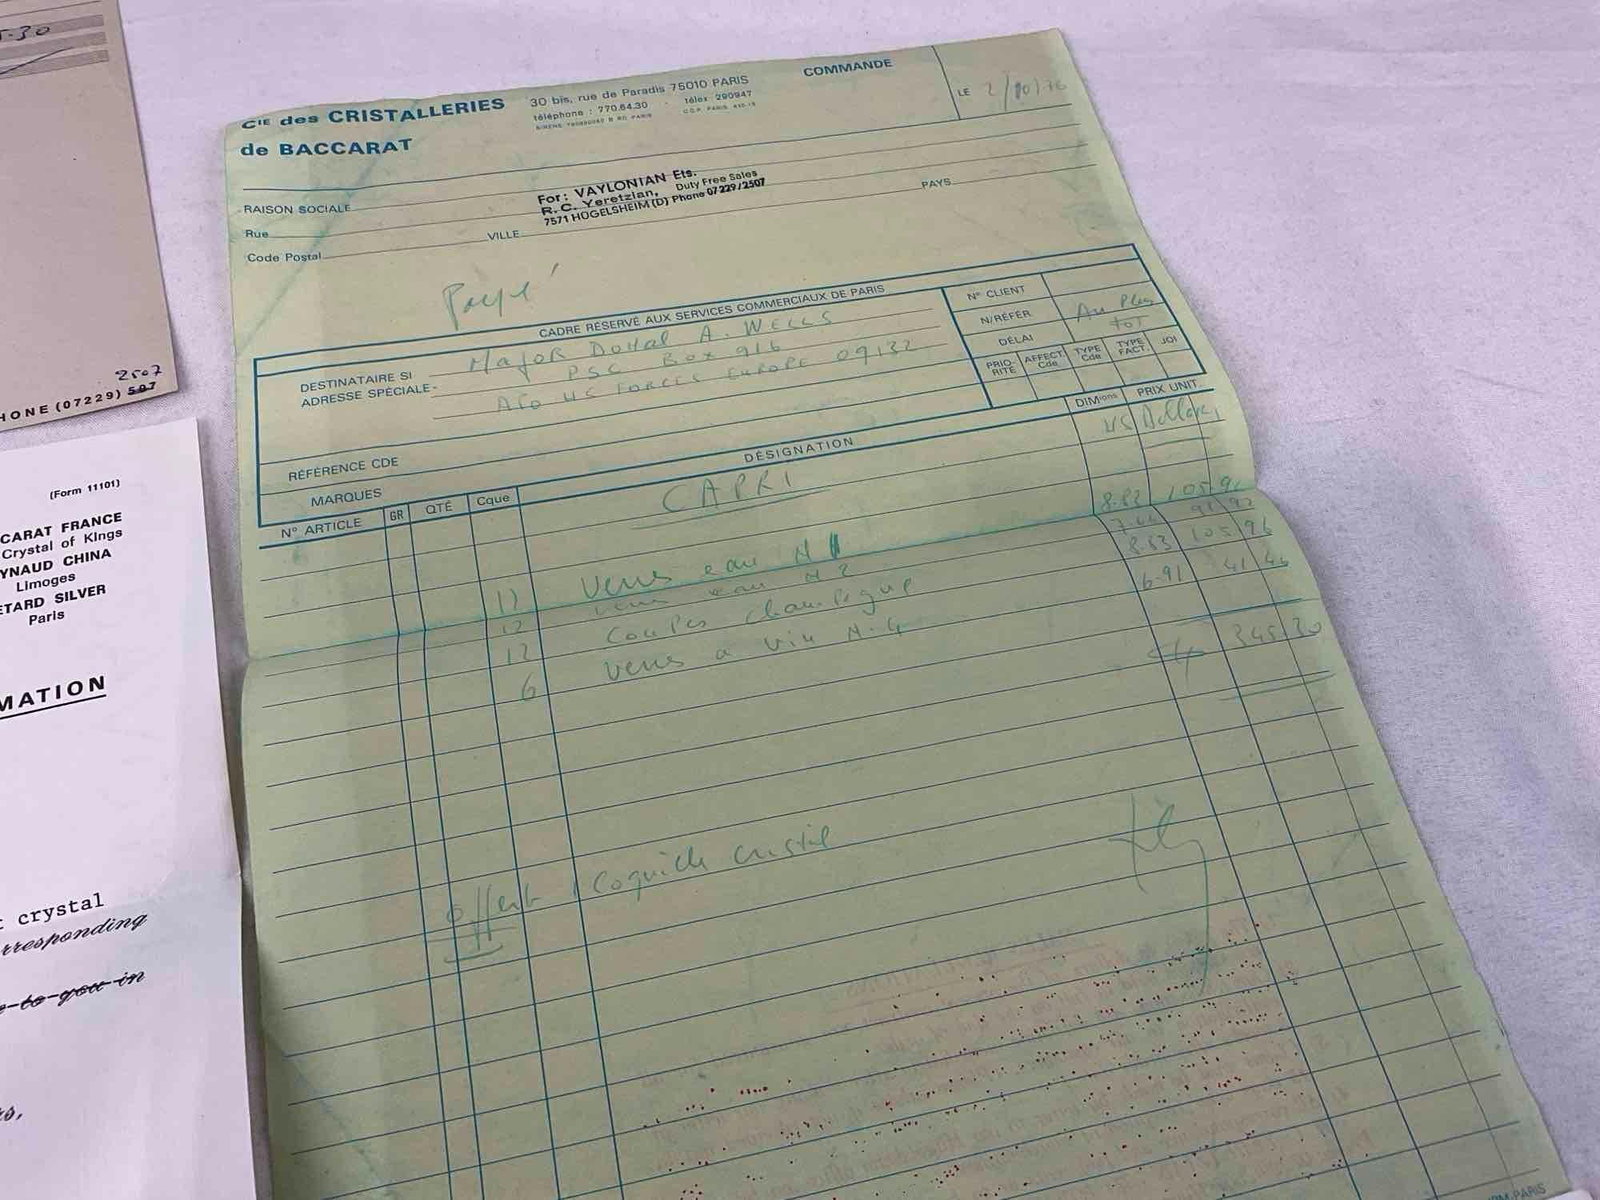 5.30
2507
HONE (07229) 507
(Form 11101)
CARAT FRANCE
Crystal of Kings
YNAUD CHINA
Limoges
ETARD SILVER
Paris
MATION
t crystal
rresponding
to you in
Cie des CRISTALLERIES
de BACCARAT
30 bis, rue de Paradis 75010 PARIS
téléphone : 770.64.30 télex 290947
COMMANDE
LE 2/10/76
RAISON SOCIALE
For: VAYLONIAN Ets.
R.C. Yeretzian, Duty Free Sales
7571 HÜGELSHEIM (D) Phone 07229/2507
Rue
VILLE
PAYS
Code Postal
Payé
CADRE RÉSERVÉ AUX SERVICES COMMERCIAUX DE PARIS
N° CLIENT
N/RÉFÉR
DÉLAI
Au Plus
tot
DESTINATAIRE SI
ADRESSE SPÉCIALE
Major A. Wells
PSC Box 916
APO US FORCES EUROPE 09132
PRIO-RITÉ AFFECT. Cde TYPE Cde TYPE FACT. JOI
RÉFÉRENCE CDE
MARQUES
N° ARTICLE GR QTÉ Cque DÉSIGNATION DIMions PRIX UNIT.
US Dollars
CAPRI
12 verres eau N 1 8.83 105.96
12 verres eau N 2 7.66 91 92
12 Coupes champagne 8.83 105 96
6 verres a vin N. 4 6.91 41 46
345.30
offert 1 Coquille cristal